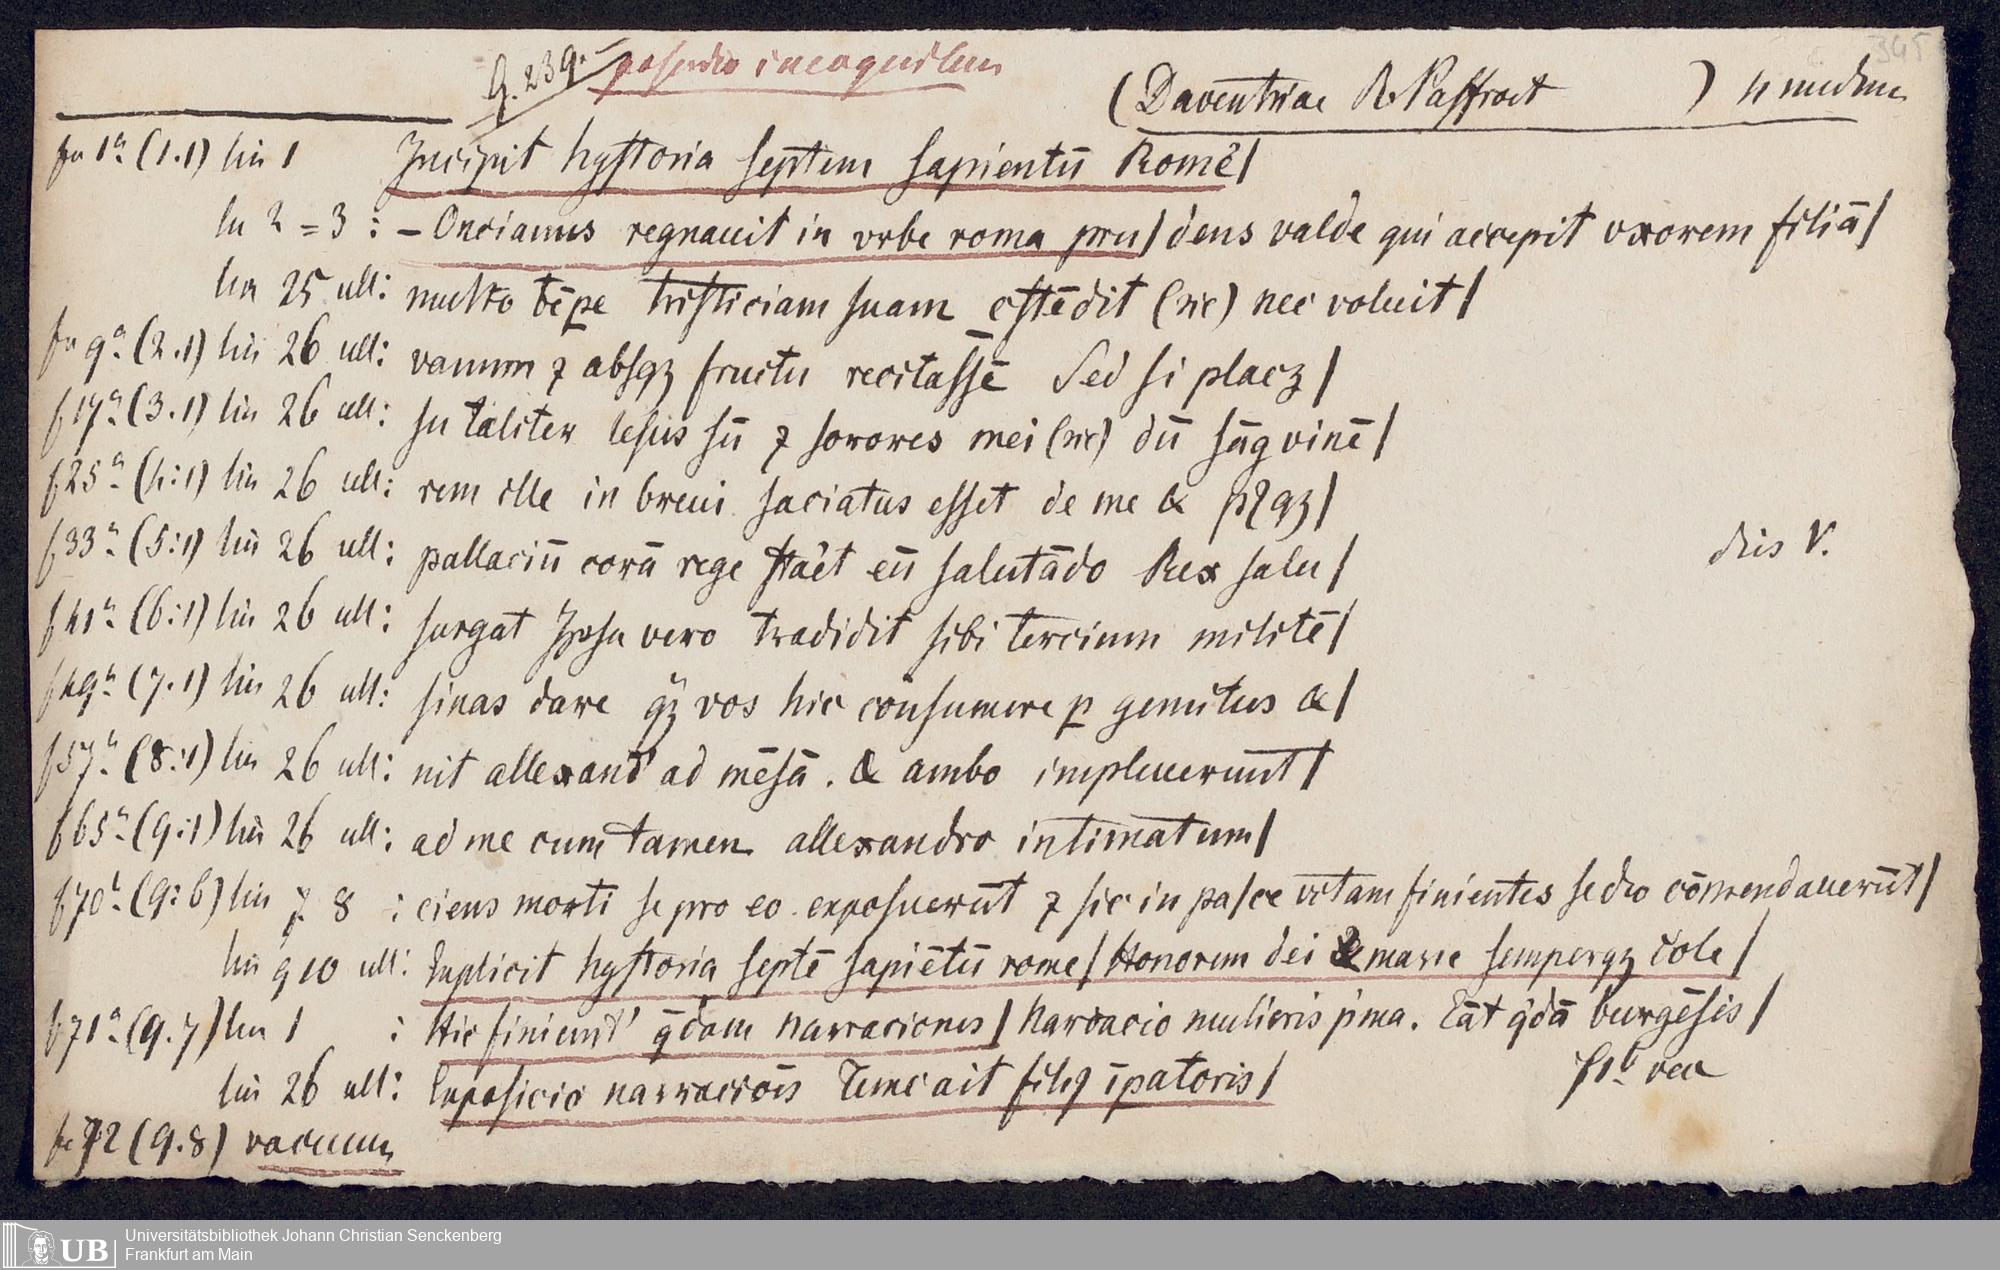 Q. 239.
345
(Daventriae R Paffroet )
fu 1ᵃ (1.1) lin 1 Incipit hystoria septem sapientū Rome/
lin 2=3: - Oncianus regnauit in vrbe roma pru/dens valde qui accepit vxorem filiā/
lin 25 ult: multo tēpe tristiciam suam oſtēdit (sic) nec voluit/
fu 9ᵃ (2.1) lin 26 ult: vanum ⁊ absqꝫ fructu recitassē Sed si placꝫ/
f 17ᵃ (3.1) lin 26 ult: su taliter lesus sū ⁊ sorores mei (sic) dū sāgvinē/
f 25ᵃ (4:1) lin 26 ult: rem ille in breui saciatus esset de me &
f 33ᵃ (5:1) lin 26 ult: pallaciū corā rege eū salutādo Rex salu/
f 41ᵃ (6:1) lin 26 ult: surgat Ipsa vero tradidit sibi tercium militē/
f 49ᵃ (7.1) lin 26 ult: sinas dare qꝫ vos hic consumere p gemitus &/
f 57ᵃ (8:1) lin 26 ult: nit allexand' ad mēsā. & ambo impleuerunt/
f 65ᵃ (9:1) lin 26 ult: ad me cum tamen allexandro intimatum/
f 70ᵇ (9:6) lin 7 8 : ciens morti se pro eo exposuerūt ⁊ sic in pa/ce vitam finientes se deo cōmendauerūt/
lin 9 10 ult: Explicit hystoria septē sapiētū rome/Honorem dei & marie semperqꝫ cole/
f 71ᵃ (9.7) lin 1 : Hic finiunt' q̄dam narraciones/Narracio mulieris p'ma. Erāt q'dā burgēsis/
lin 26 ult: Exposicio narraciōis Tunc ait filiꝯ īpatoris/
f 1ᵇ vac
fu 72 (9.8) vacuum